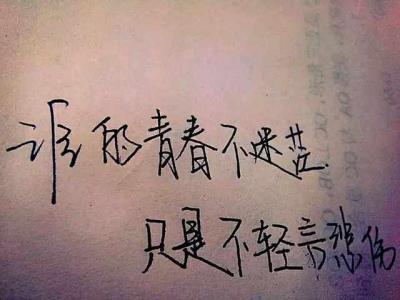 谁的青春不迷茫.
只是不轻言悲伤